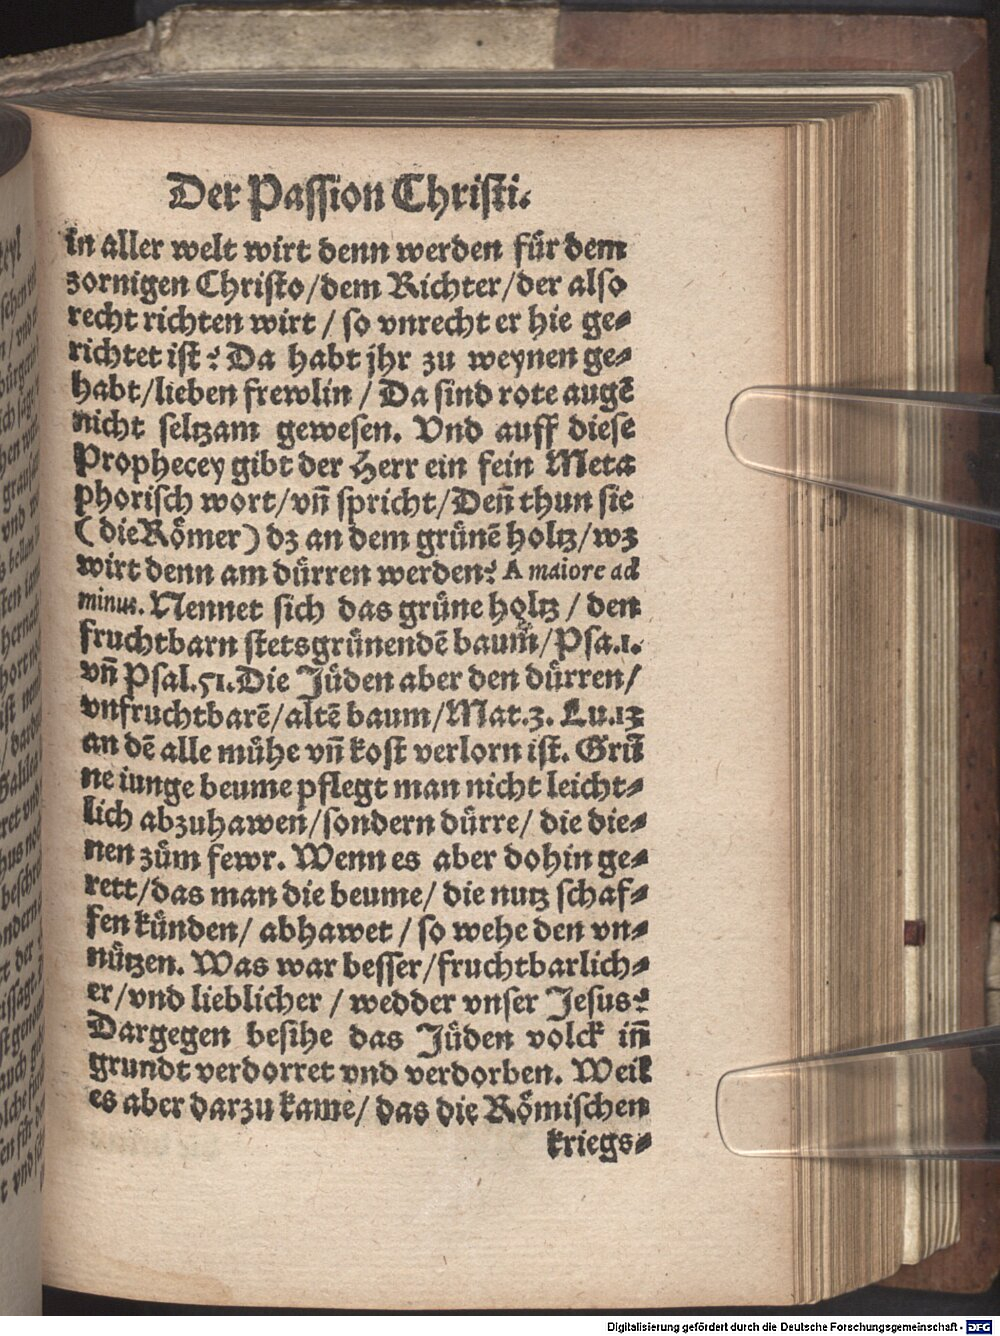 Der Passion Christi.
in aller welt wirt denn werden für dem
zornigen Christo/dem Richter/der also
recht richten wirt / so vnrecht er hie ge⸗
richtet ist? Da habt jhr zu weynen ge⸗
habt/lieben frewlin / Da sind rote augē
nicht seltzam gewesen. Vnd auff diese
Prophecey gibt der Herr ein fein Meta
phorisch wort/vñ spricht/Deñ thun sie
(die Römer) dz an dem grünē holtz/wz
wirt denn am dürren werden? A maiore ad
minus. Nennet sich das grüne holtz / den
fruchtbarn stetsgrünendē baum̃/Psa.1.
vñ Psal.51. Die Jüden aber den dürren/
vnfruchtbarē/altē baum/Mat.3. Lu.13
an dē alle mühe vñ kost verlorn ist. Grü
ne iunge beume pflegt man nicht leicht⸗
lich abzuhawen/sondern dürre/ die die⸗
nen züm fewr. Wenn es aber dohin ge⸗
rett/das man die beume/ die nutz schaf⸗
fen künden/ abhawet / so wehe den vn⸗
nützen. Was war besser/fruchtbarlich⸗
er/vnd lieblicher / wedder vnser Jesus?
Dargegen besihe das Jüden volck iñ
grundt verdorret vnd verdorben. Weil
es aber darzu kame/ das die Römischen
kriegs⸗
Digitalisierung gefördert durch die Deutsche Forschungsgemeinschaft - DFG